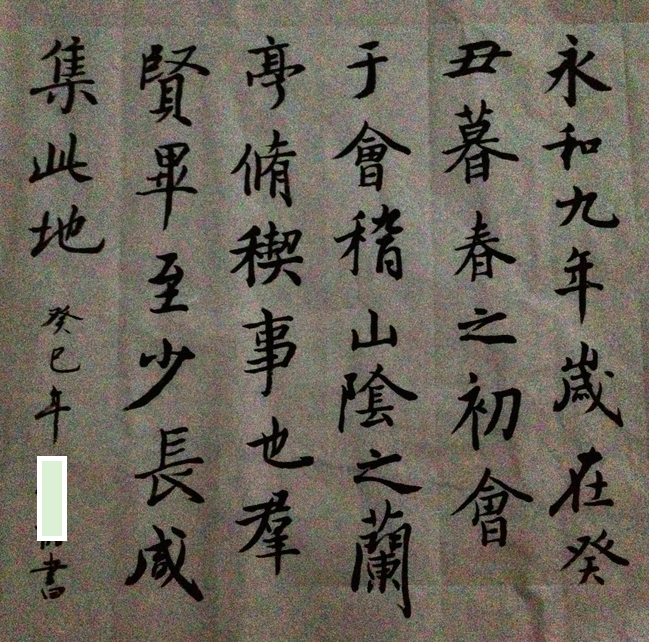 永和九年歲在癸
丑暮春之初會
于會稽山陰之蘭
亭脩稧事也羣
賢畢至少長咸
集此地
癸巳年
書